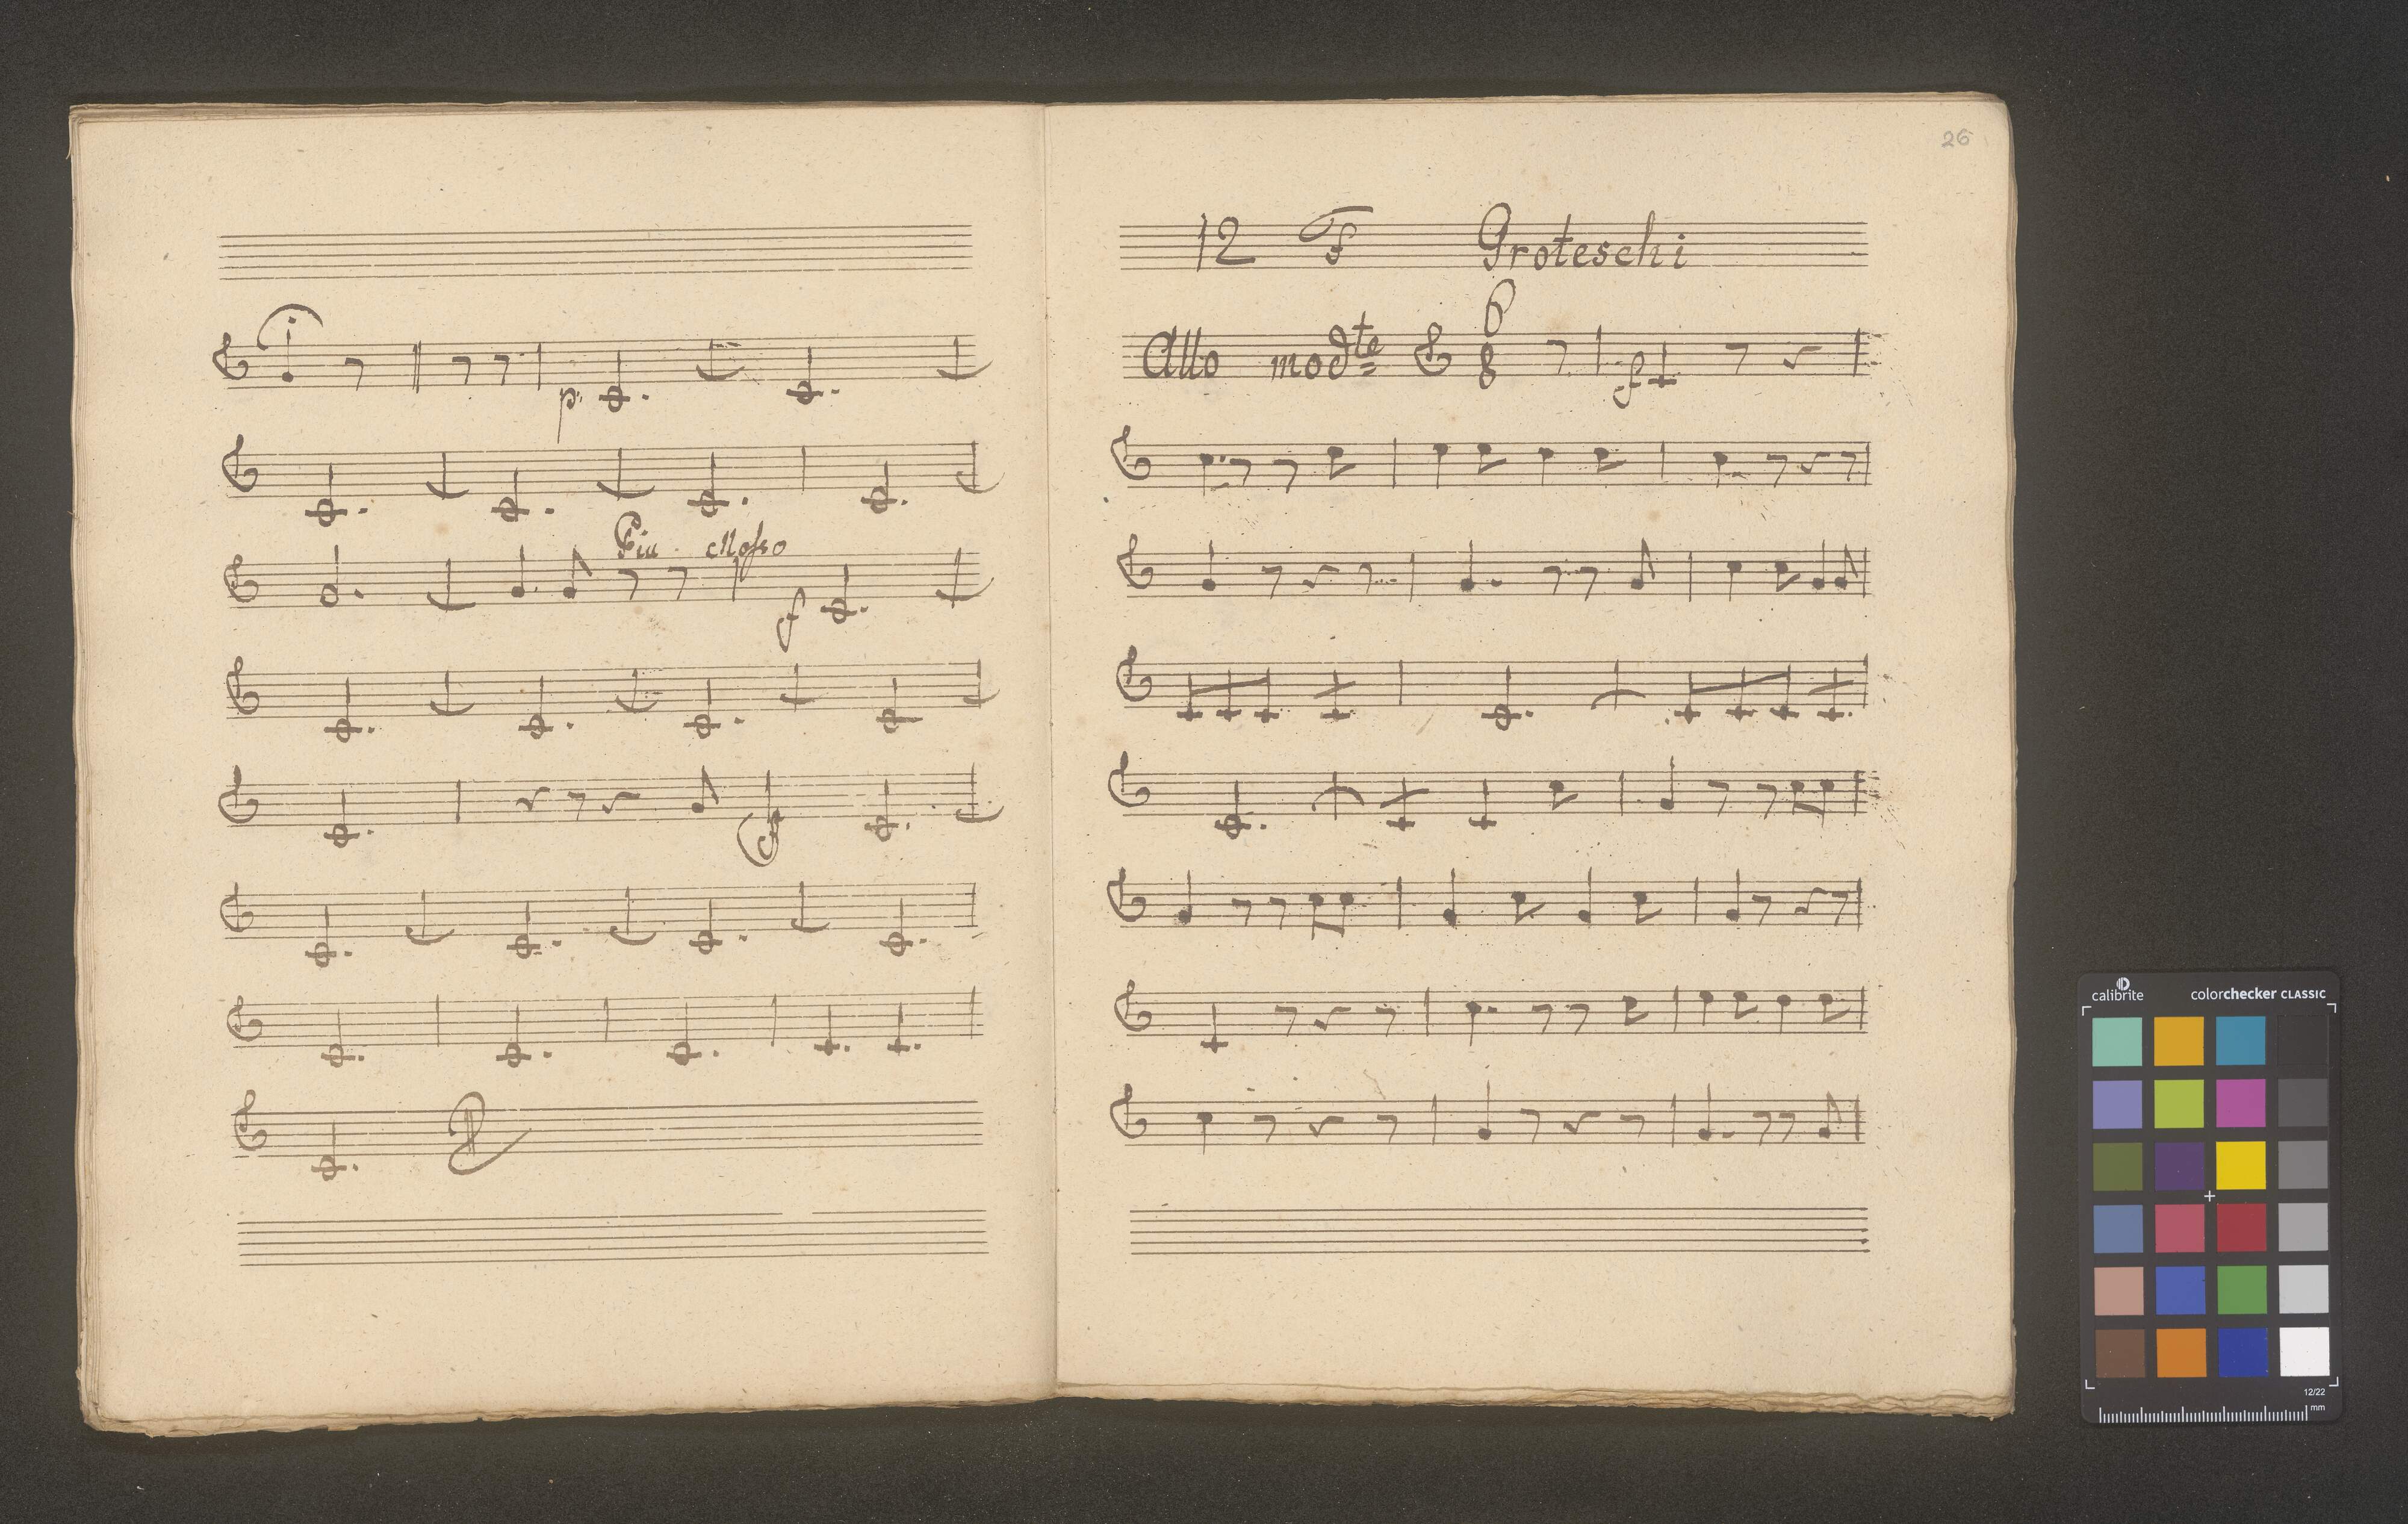 p.
Piu Mosso
f
26
12 F Groteschi
Allo mod.te 6 8 f
calibrite colorchecker CLASSIC
12/22
mm